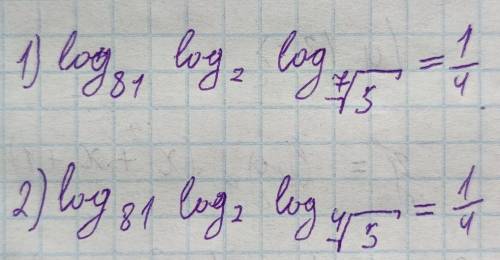 1) log₈₁ log₂ log_⁷√5 = 1/4
2) log₈₁ log₂ log_⁴√5 = 1/4